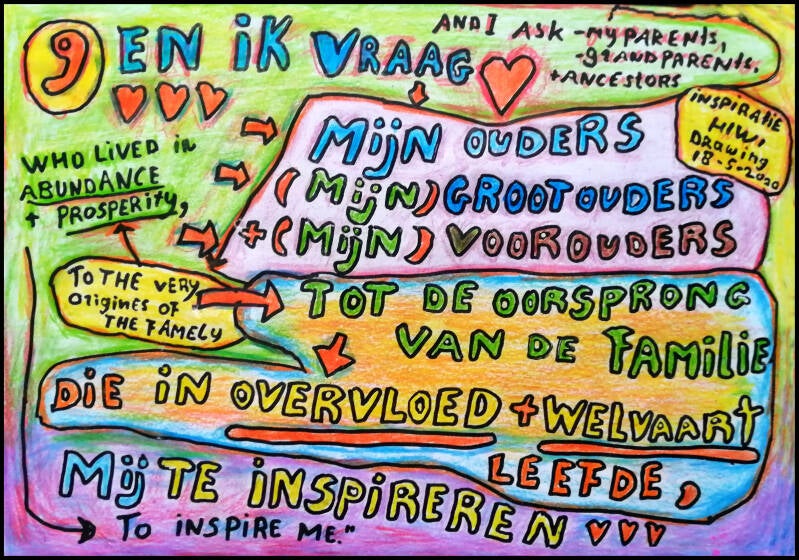 9 EN iK VRAAG
AND I ASK - MY PARENTS,
- GRANDPARENTS,
+ ANCESTORS
MijN OUDERS
(MijN) GROOTOUDERS
+ (MijN) VOOROUDERS
iNSPiRATiE
HiWi
DRAWiNG
18-5-2020
WHO LiVED iN
ABUNDANCE
+ PROSPERiTY,
TO THE VERY
ORiGiNES OF
THE FAMELY
TOT DE OORSPRONG
VAN DE FAMiLiE
DiE iN OVERVLOED + WELVAART
LEEFDE,
MiJ TE iNSPiREREN
TO INSPIRE ME."